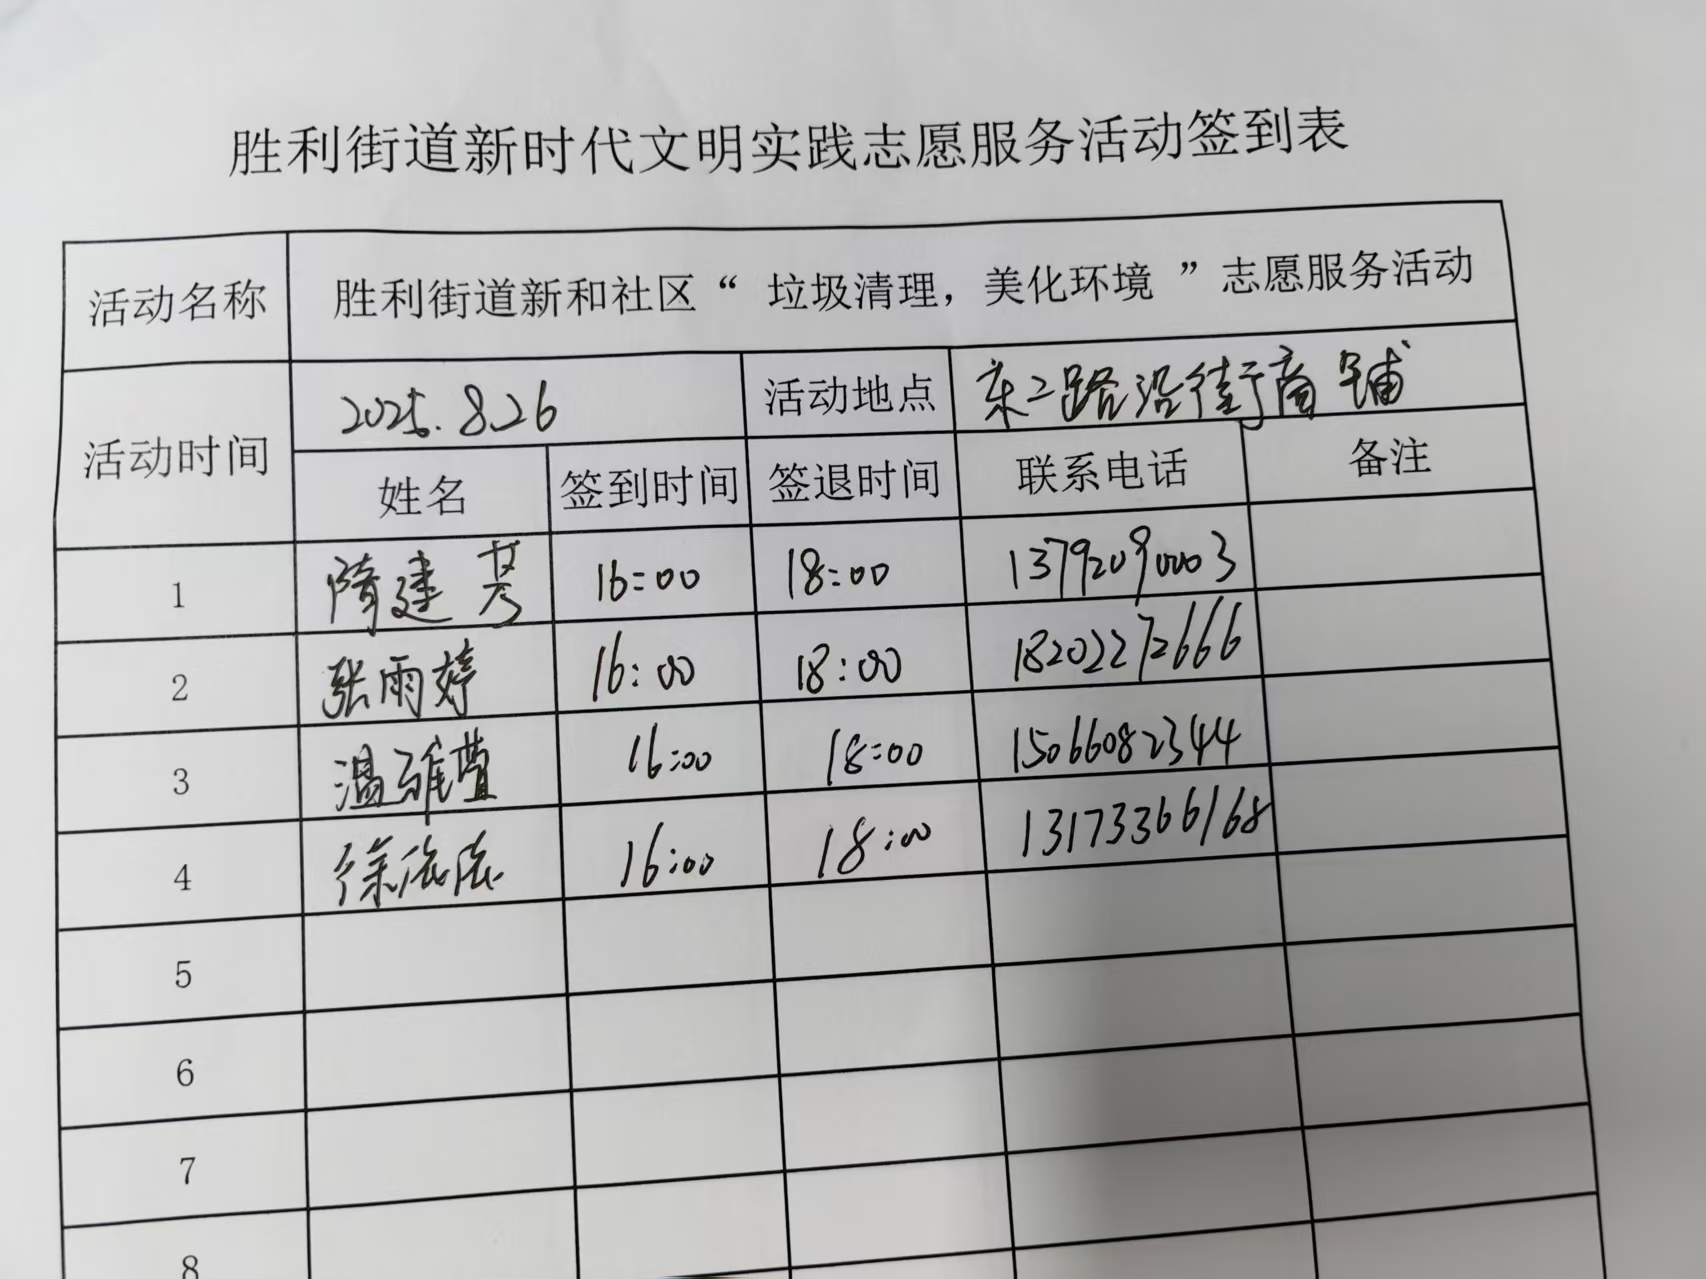 胜利街道新时代文明实践志愿服务活动签到表
活动名称 胜利街道新和社区“ 垃圾清理，美化环境 ”志愿服务活动
活动时间 2025.8.26 活动地点 东二路沿街商铺
姓名 签到时间 签退时间 联系电话 备注
1 隋建芳 16:00 18:00 13792090003
2 张雨婷 16:00 18:00 18202272666
3 温雅萱 16:00 18:00 15066082344
4 徐依依 16:00 18:00 13173366168
5
6
7
8